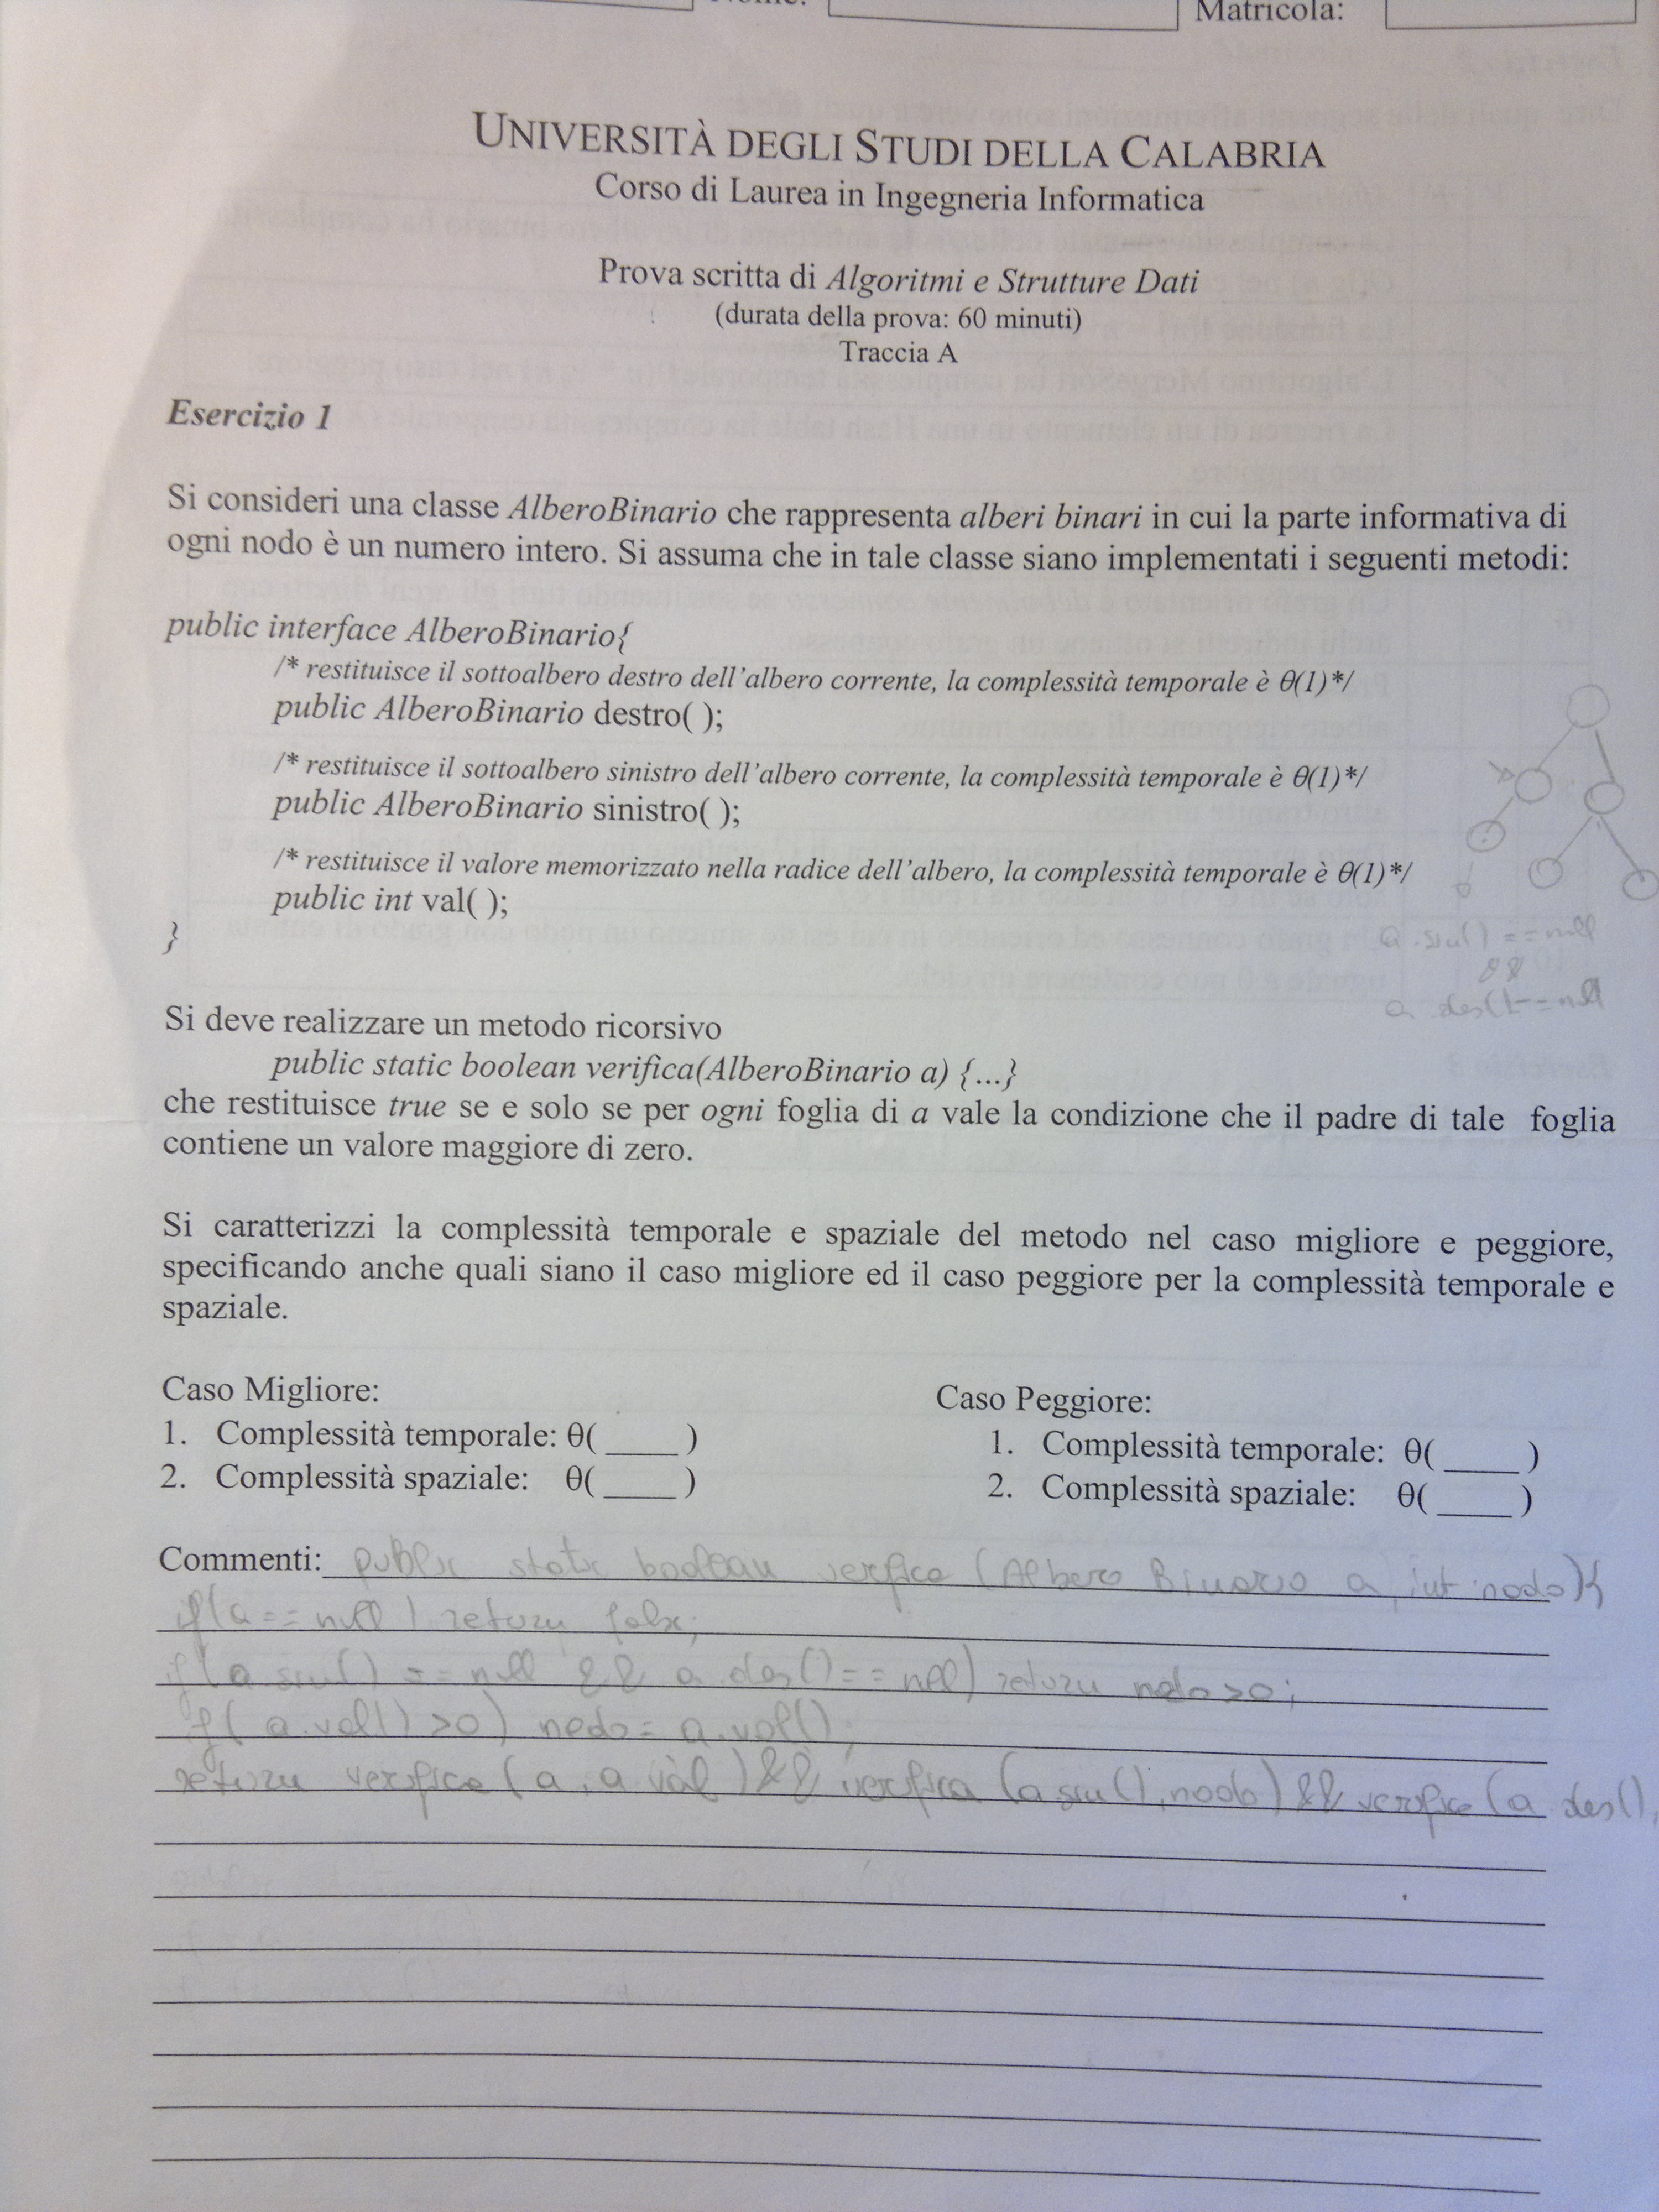 Matricola:
UNIVERSITÀ DEGLI STUDI DELLA CALABRIA
Corso di Laurea in Ingegneria Informatica
Prova scritta di Algoritmi e Strutture Dati
(durata della prova: 60 minuti)
Traccia A
Esercizio 1
Si consideri una classe AlberoBinario che rappresenta alberi binari in cui la parte informativa di
ogni nodo è un numero intero. Si assuma che in tale classe siano implementati i seguenti metodi:
public interface AlberoBinario{
/* restituisce il sottoalbero destro dell'albero corrente, la complessità temporale è θ(1)*/
public AlberoBinario destro( );
/* restituisce il sottoalbero sinistro dell'albero corrente, la complessità temporale è θ(1)*/
public AlberoBinario sinistro( );
/* restituisce il valore memorizzato nella radice dell'albero, la complessità temporale è θ(1)*/
public int val( );
}
a.sin() == null
&&
a des() == null
Si deve realizzare un metodo ricorsivo
public static boolean verifica(AlberoBinario a) {...}
che restituisce true se e solo se per ogni foglia di a vale la condizione che il padre di tale foglia
contiene un valore maggiore di zero.
Si caratterizzi la complessità temporale e spaziale del metodo nel caso migliore e peggiore,
specificando anche quali siano il caso migliore ed il caso peggiore per la complessità temporale e
spaziale.
Caso Migliore:
1. Complessità temporale: θ( ____ )
2. Complessità spaziale: θ( ____ )
Caso Peggiore:
1. Complessità temporale: θ( ____ )
2. Complessità spaziale: θ( ____ )
Commenti: public static boolean verifica (Albero Binario a, int nodo){
if(a == null) return false;
if(a sin() == null && a des() == null) return nodo>0;
if( a.val() >0) nodo = a.val();
return verifica (a, a.val) && verifica (a sin(), nodo) && verifica (a des(),